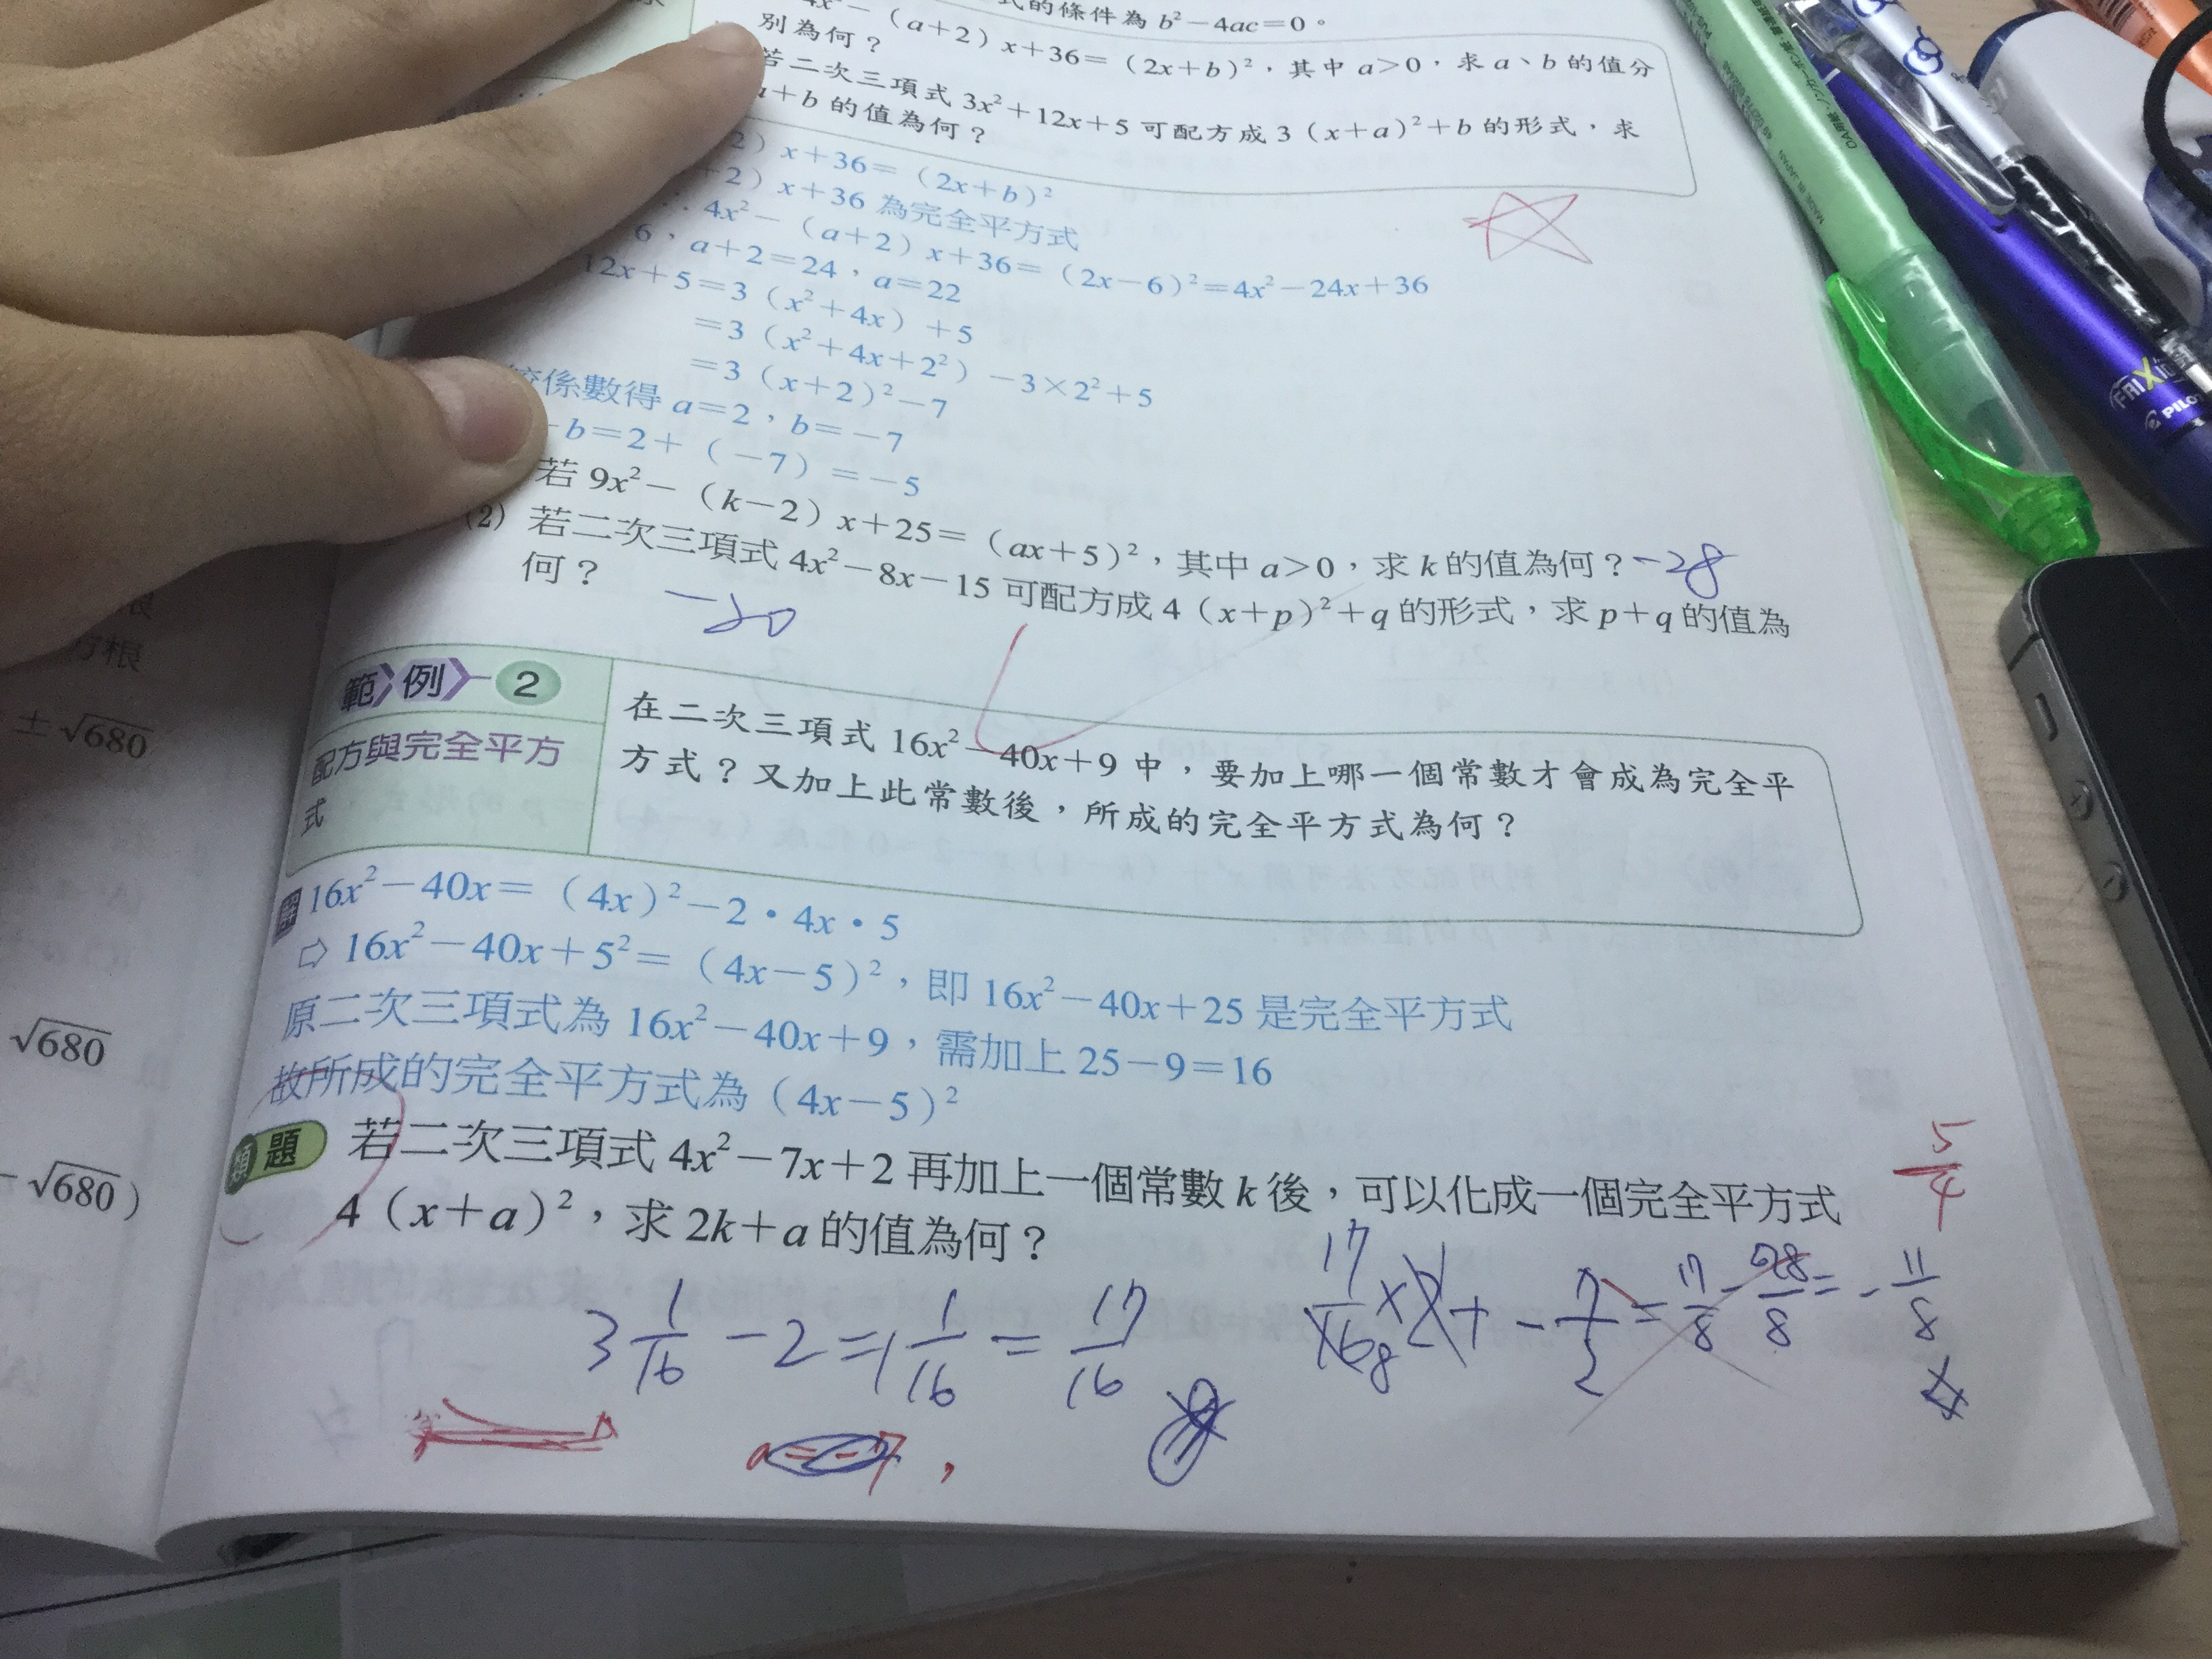 式的條件為 b²－4ac＝0。
4x²－（a＋2）x＋36＝（2x＋b）²，其中 a＞0，求 a、b 的值分
別為何？
若二次三項式 3x²＋12x＋5 可配方成 3（x＋a）²＋b 的形式，求
a＋b 的值為何？
2）x＋36＝（2x＋b）²
＋2）x＋36 為完全平方式
∴4x²－（a＋2）x＋36＝（2x－6）²＝4x²－24x＋36
6，a＋2＝24，a＝22
12x＋5＝3（x²＋4x）＋5
＝3（x²＋4x＋2²）－3×2²＋5
＝3（x＋2）²－7
係數得 a＝2，b＝－7
b＝2＋（－7）＝－5
若 9x²－（k－2）x＋25＝（ax＋5）²，其中 a＞0，求 k 的值為何？ -28
(2) 若二次三項式 4x²－8x－15 可配方成 4（x＋p）²＋q 的形式，求 p＋q 的值為
何？ -20
範例 2
配方與完全平方
式
在二次三項式 16x²－40x＋9 中，要加上哪一個常數才會成為完全平
方式？又加上此常數後，所成的完全平方式為何？
16x²－40x＝（4x）²－2・4x・5
⇨ 16x²－40x＋5²＝（4x－5）²，即 16x²－40x＋25 是完全平方式
原二次三項式為 16x²－40x＋9，需加上 25－9＝16
故所成的完全平方式為（4x－5）²
類題 若二次三項式 4x²－7x＋2 再加上一個常數 k 後，可以化成一個完全平方式
4（x＋a）²，求 2k＋a 的值為何？
5/4
3 1/16 - 2 = 1 1/16 = 17/16
17/16 8 × 2 + - 7/2 = 17/8 - 28/8 = - 11/8
a = -7 ,
± √680
方根
√680
－√680）
FRIXION
PILOT
MADE IN JAPAN